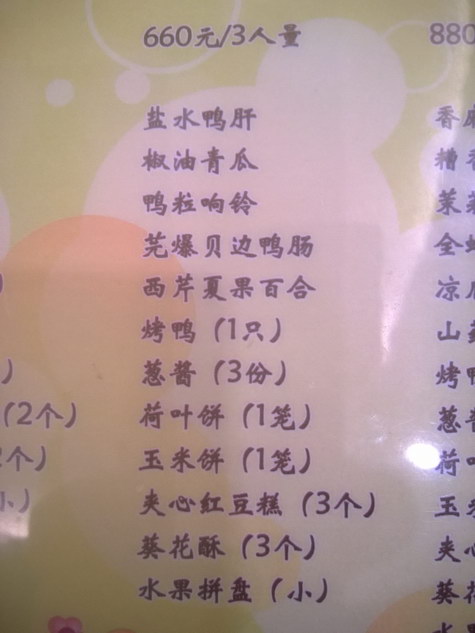 660元/3人量
盐水鸭肝
椒油青瓜
鸭粒响铃
芫爆贝边鸭肠
西芹夏果百合
烤鸭（1只）
葱酱（3份）
荷叶饼（1笼）
玉米饼（1笼）
夹心红豆糕（3个）
葵花酥（3个）
水果拼盘（小）
）
（2个）
2个）
小）
880
香
糟香
茉
全
凉瓜
山
烤鸭
葱酱
荷叶
玉米
夹心
葵花
水果